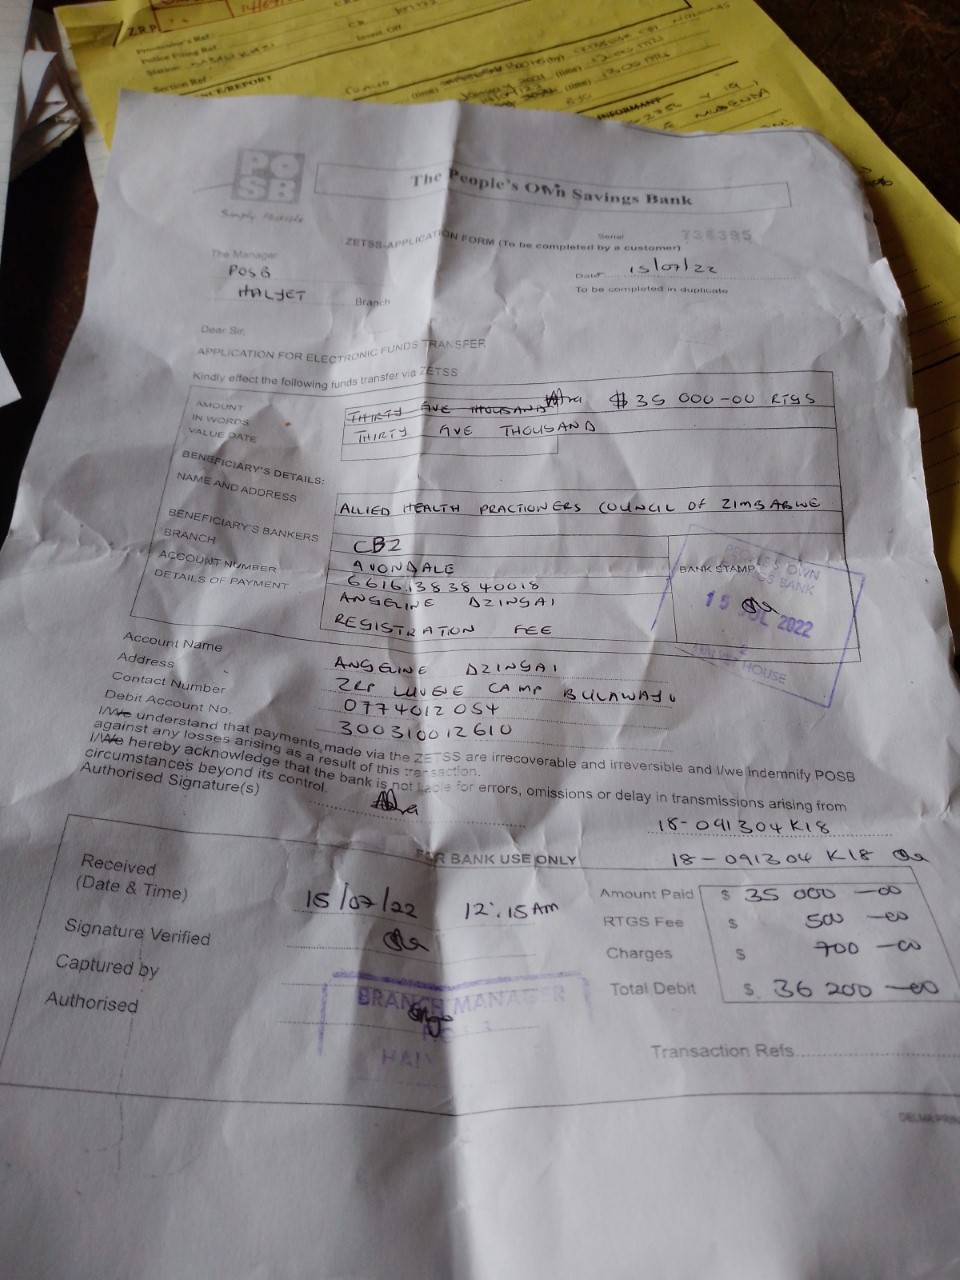 Z.R.P.
Prosecutor's Ref
Police Filing Ref
Station
Section Ref
Invest. Off
CE/REPORT
INFORMANT
PO
SB
The People's Own Savings Bank
Simply Possible
Serial 738395
ZETSS-APPLICATION FORM (To be completed by a customer)
The Manager
POSB
Date 15/07/22
HALYET Branch
To be completed in duplicate
Dear Sir,
APPLICATION FOR ELECTRONIC FUNDS TRANSFER
Kindly effect the following funds transfer via ZETSS
AMOUNT THIRTY FIVE THOUSAND $ 35 000-00 RTGS
IN WORDS THIRTY FIVE THOUSAND
VALUE DATE
BENEFICIARY'S DETAILS:
NAME AND ADDRESS ALLIED HEALTH PRACTIONERS COUNCIL OF ZIMBABWE
BENEFICIARY'S BANKERS CBZ
BRANCH AVONDALE
ACCOUNT NUMBER 66161383840018
DETAILS OF PAYMENT ANGELINE DZINGAI
REGISTRATION FEE
BANK STAMP
PEOPLE'S OWN
SAVINGS BANK
15 JUL 2022
2
HOUSE
Account Name ANGELINE DZINGAI
Address ZRP LUVEVE CAMP BULAWAYO
Contact Number 0774012054
Debit Account No. 300310012610
I/We understand that payments made via the ZETSS are irrecoverable and irreversible and I/we indemnify POSB
against any losses arising as a result of this transaction.
I/We hereby acknowledge that the bank is not liable for errors, omissions or delay in transmissions arising from
circumstances beyond its control.
Authorised Signature(s)
18-091304K18
FOR BANK USE ONLY
18-091304 K18
Received
(Date & Time) 15/07/22 12:15AM
Signature Verified
Captured by
Authorised
BRANCH MANAGER
Amount Paid $ 35 000-00
RTGS Fee $ 500-00
Charges $ 700-00
Total Debit $ 36 200-00
Transaction Refs